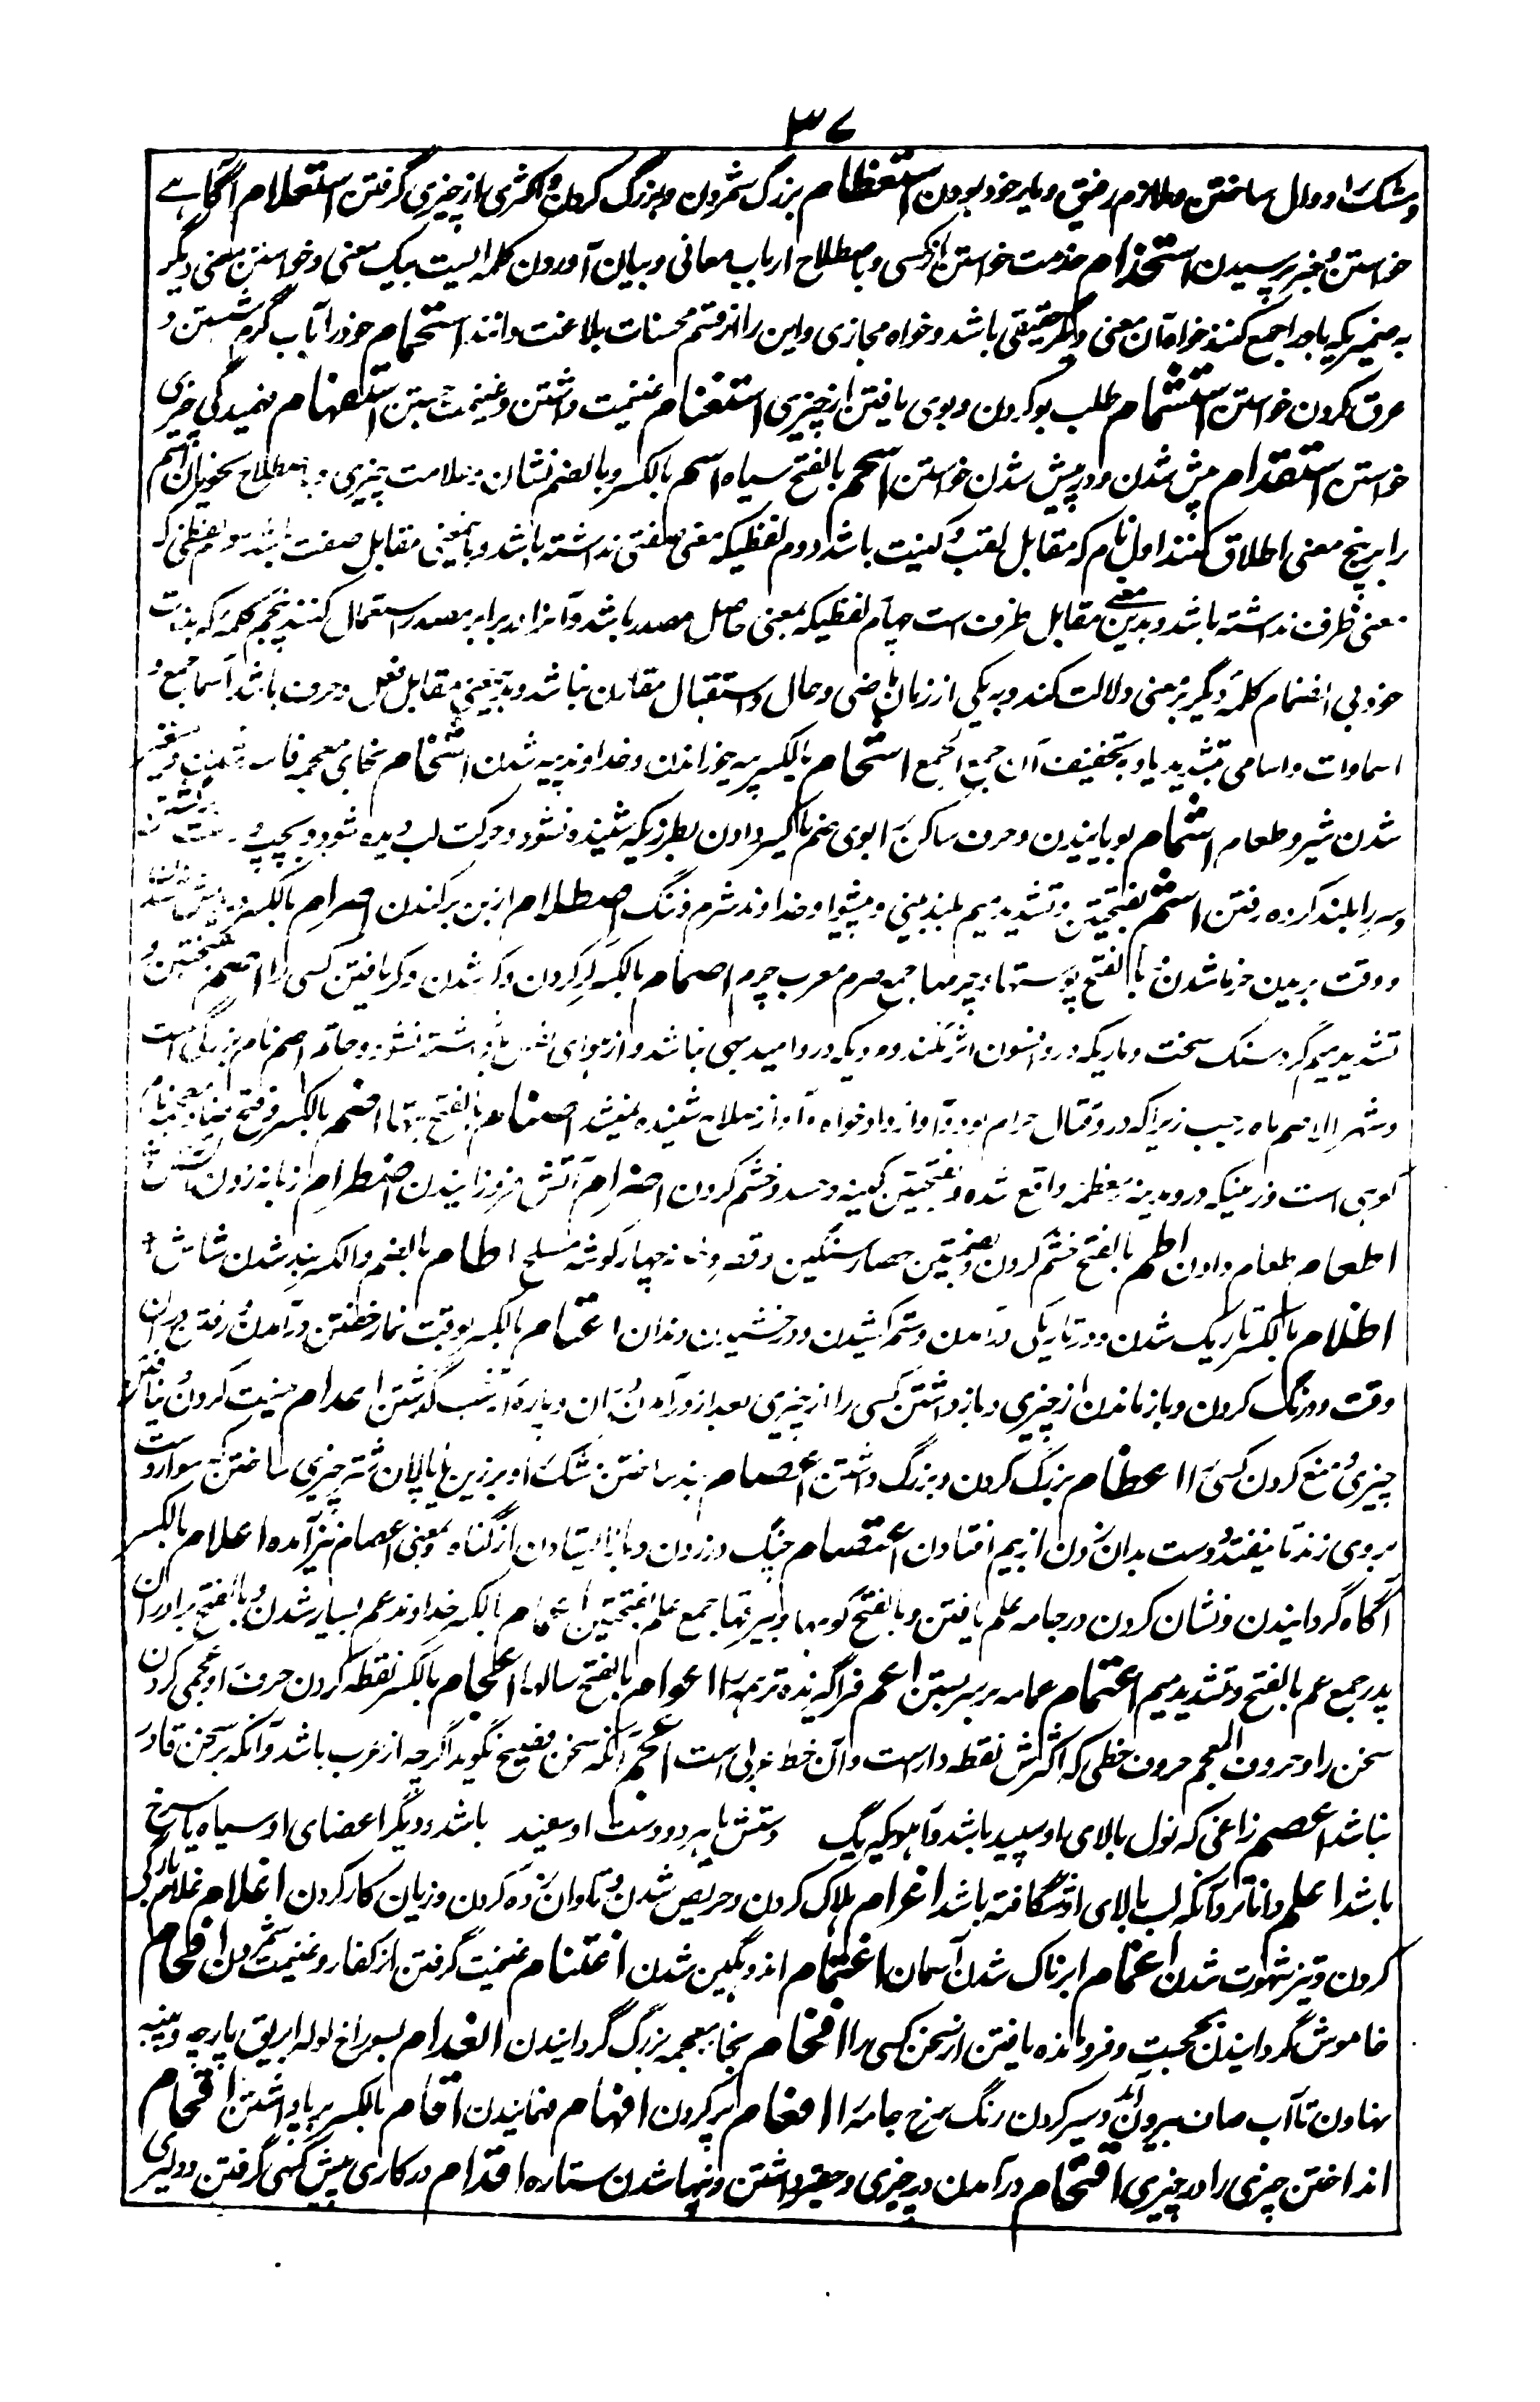 ۳۷
و مشک را دوال ساختن و ملازم رفیق و یار خود بودن استعظام بزرگ شمردن و بزرگ کردن و اکثری از چیزی گرفتن استعلام آگاهے
خواستن و خبر پرسیدن استخدام خدمت خواستن از کسی و باصطلاح ارباب معانی و بیان آوردن کلمه ایست بیک معنی و خواستن معنی دیگر
به ضمیریکه باو راجع کنند خواه آن معنی دیگر حقیقی باشد و خواه مجازی و این را از قسم محسنات بلاغت دانند استحمام خود را بآب گرم شستن و
عرق کردن خواستن استشمام طلب بو کردن و بوی یافتن از چیزی استغنام غنیمت داشتن و غنیمت جستن استفهام فهمیدگی چیزی
خواستن استقدام پیش شدن و در پیش شدن خواستن اسحم بالفتح سیاه اسم بالکسر و بالضم نشان و علامت چیزی و باصطلاح نحویان اسم
را بر پنج معنی اطلاق کنند اول نام که مقابل لقب و کنیت باشد دوم لفظیکه معنی صفتی نداشته باشد و باینمعنی مقابل صفت باشد سوم لفظی که
معنی ظرف نداشته باشد و بدین معنے مقابل ظرف است چهارم لفظیکه بمعنی حاصل مصدر باشد و آنرا در برابر مصدر استعمال کنند پنجم کلمه که بذات
خود بی انضمام کلمه دیگر بر معنی دلالت کند و به یکی از زمان ماضی و حال و استقبال مقارن نباشد و باینمعنی مقابل فعل و حرف باشد اسما جمع و
اسماوات و اسامی بتشدید یا و به تخفیف آن جمع الجمع استحام بالکسر پیه خوراندن و خداوند پیه شدن اشخام بخای معجمه فاسد
شدن شیر و طعام اشمام بویانیدن و حرف ساکن را بوی ضم یا کسر دادن بطرزیکه شنیده نشود و حرکت لب دیده شود و
و سر را بلند کرده رفتن اشم بفتحتین و تشدید میم بلند بینی و پیشوا و خداوند شرم و ننگ اصطلام از بن برکندن اصرام بالکسر
و وقت بریدن خرما شدن و بالفتح پوستها و چرمها جمع صرم معرب چرم اصمام بالکسر کر کردن و کر شدن و کر یافتن کسی را اصم بفتحتین و
تشدید میم کر و سنگ سخت و ماریکه درو افسون اثر نکند و مردیکه درو امید بهی نباشد و از هوای نفس باز داشته نشود و حاتم اصم نام بزرگی است
و شهر الله الاصم ماه رجب زیرا که درو قتال حرام بود و آواز داد خواه و آواز سلاح شنیده نمیشد اصنام بالفتح بتها اضم بالکسر و فتح
کوهی است و زمینیکه درو مدینه معظمه واقع شده و بفتحتین کینه و حسد و خشم کردن اضرام آتش فروزانیدن اضطرام زبانه زدن آتش
اطعام طعام دادن اطم بالفتح خشم کردن و بضمتین حصار سنگین و قصر و خانه چهار گوشه مسطح اطام بالضم و الکسر بند شدن شاش
اظلام بالکسر تاریک شدن و در تاریکی درآمدن و ستم کشیدن و درخشیدن دندان اعتام بالکسر بوقت نماز خفتن درآمدن و رفتن در آن
وقت و درنگ کردن و باز ماندن از چیزی و باز داشتن کسی را از چیزی بعد از درآمدن در آن و پاره از شب گذشتن اعدام نیست کردن و نیافتن
چیزی و منع کردن کسی را اعظام بزرگ کردن و بزرگ داشتن اعصام بند ساختن مشک را و بر زین یا پالان شتر چیزی ساختن که سوار دست
بروی زند تا نیفتد و دست بدان زدن از بیم افتادن اعتصام چنگ در زدن و باز ایستادن از گناه و بمعنی اعصام نیز آمده اعلام بالکسر
آگاه گردانیدن و نشان کردن در جامه علم یافتن و بالفتح کوهها و بیرقها جمع علم بفتحتین اعمام بالکسر خداوند عم بسیار شدن و بالفتح برادران
پدر جمع عم بالفتح و تشدید میم اعتمام عمامه بر سر بستن اعم فراگیرنده تر همه را اعوام بالفتح سالها اعجام بالکسر نقطه کردن حرف را و عجمی کردن
سخن را و حروف المعجم حروف خطی که اکثرش نقطه دار است و آن خط عربی است اعجم آنکه سخن فصیح نگوید اگرچه از عرب باشد و آنکه بر سخن قادر
نباشد اعصم زاغی که نول بالای او سپید باشد و آهویکه یک دستش یا هر دو دست او سفید باشد و دیگر اعضای او سیاه یا سرخ
باشد اعلم داناتر و آنکه لب بالای او شگافته باشد اغرام هلاک کردن و حریص شدن و تاوان زده کردن و زیان کار کردن اغلام غلام بارگی
کردن و تیز شهوت شدن اغمام ابرناک شدن آسمان اغتمام اندوهگین شدن اغتنام غنیمت گرفتن از کفار و غنیمت شمردن افحام
خاموش گردانیدن بحجت و فرومانده یافتن از سخن کسی را افخام بخای معجمه بزرگ گردانیدن الغدام بسوراخ لوله ابریق پارچه و پنبه
نهادن تا آب صاف بیرون آید و سیر کردن رنگ سرخ جامه را افعام پر کردن افهام فهمانیدن اقام بالکسر برپا داشتن اقحام
انداختن چیزی را در چیزی اقتحام درآمدن در چیزی و حقیر داشتن و نهان شدن ستاره اقدام در کاری پیش کسی گرفتن و دلیری